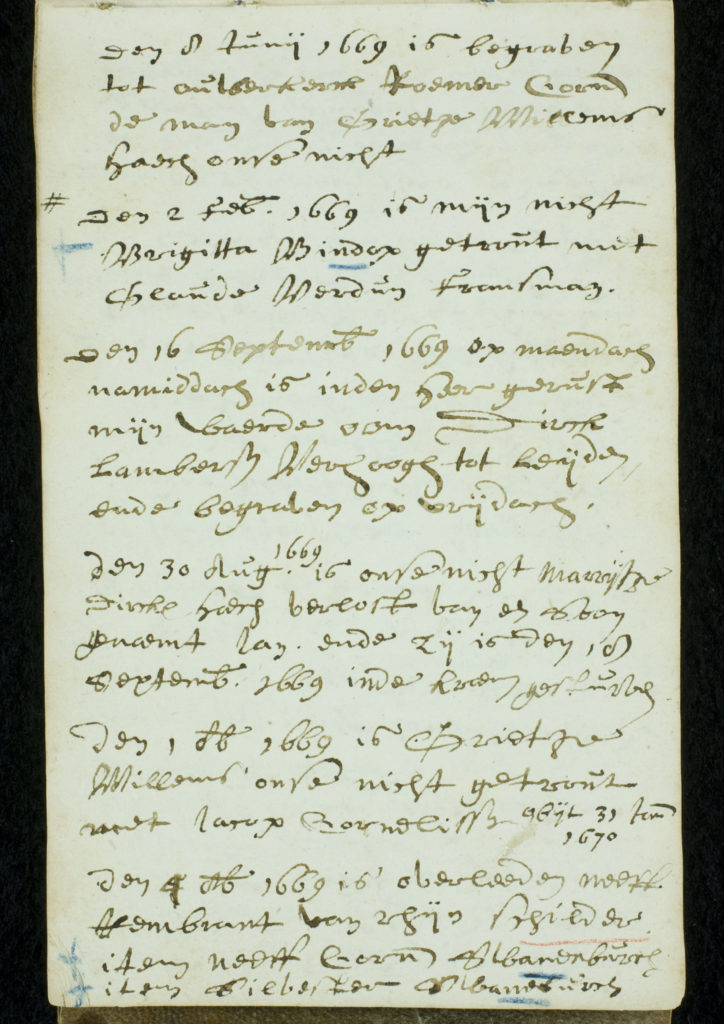 den 8 Junij 1669 is begraven
tot ouwerkerck Roemer Corn
de man van Grietje Willems
haech onse nicht
# den 2 Feb. 1669 is mijn nicht
Brigitta getrout met
Glaude Verdun fransman.
den 16 Septemb 1669 op maendach
namiddach is inden heer gerust
mijn waerde oom Dirck
Lambersz Verhoogh tot Leijden
ende begraven op vrijdach.
den 30 Aug. 1669 is onse nicht Marrijtje
Dircks haech verlost van en Soon
genaemt Jan. ende zij is den 18
Septemb. 1669 inde kraem gesturven
den 1 8b 1669 is Grietje
Willems onse nicht getrout
met Jacop Cornelissz 31 Jan
1670
den 4 8b 1669 is overleeden neeff
Rembrant van Rhijn schilder
item neeff Corn Swanenburch
item Silvester Swanenburch